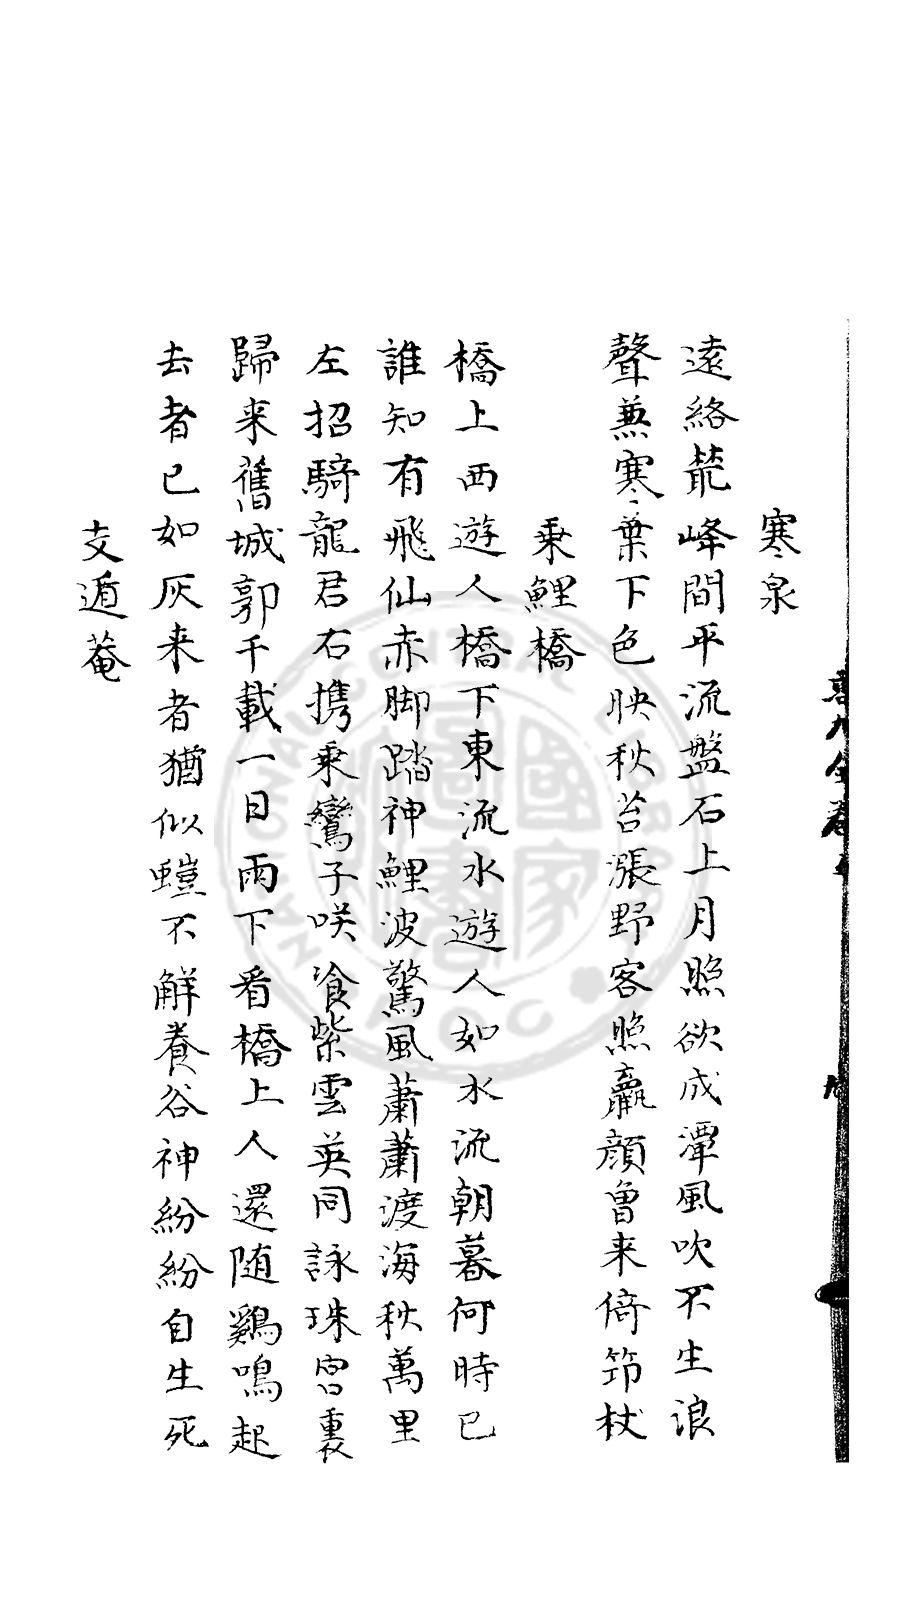 寒泉
遠絡茈峰間平流盤石上月照欲成潭風吹不生浪
聲兼寒葉下色映秋苔漲野客照羸顔曾来倚筇杖
乘鯉橋
橋上西遊人橋下東流水遊人如水流朝暮何時已
誰知有飛仙赤脚踏神鯉波驚風蕭蕭渡海秋萬里
左招騎龍君右携乘鸞子咲飡紫雲英同詠珠宮裏
歸来舊城郭千載一日雨下看橋上人還随鷄鳴起
去者已如灰来者猶似螘不解養谷神紛紛自生死
支遁菴
NATIONAL CENTRAL LIBRARY
國家圖書館